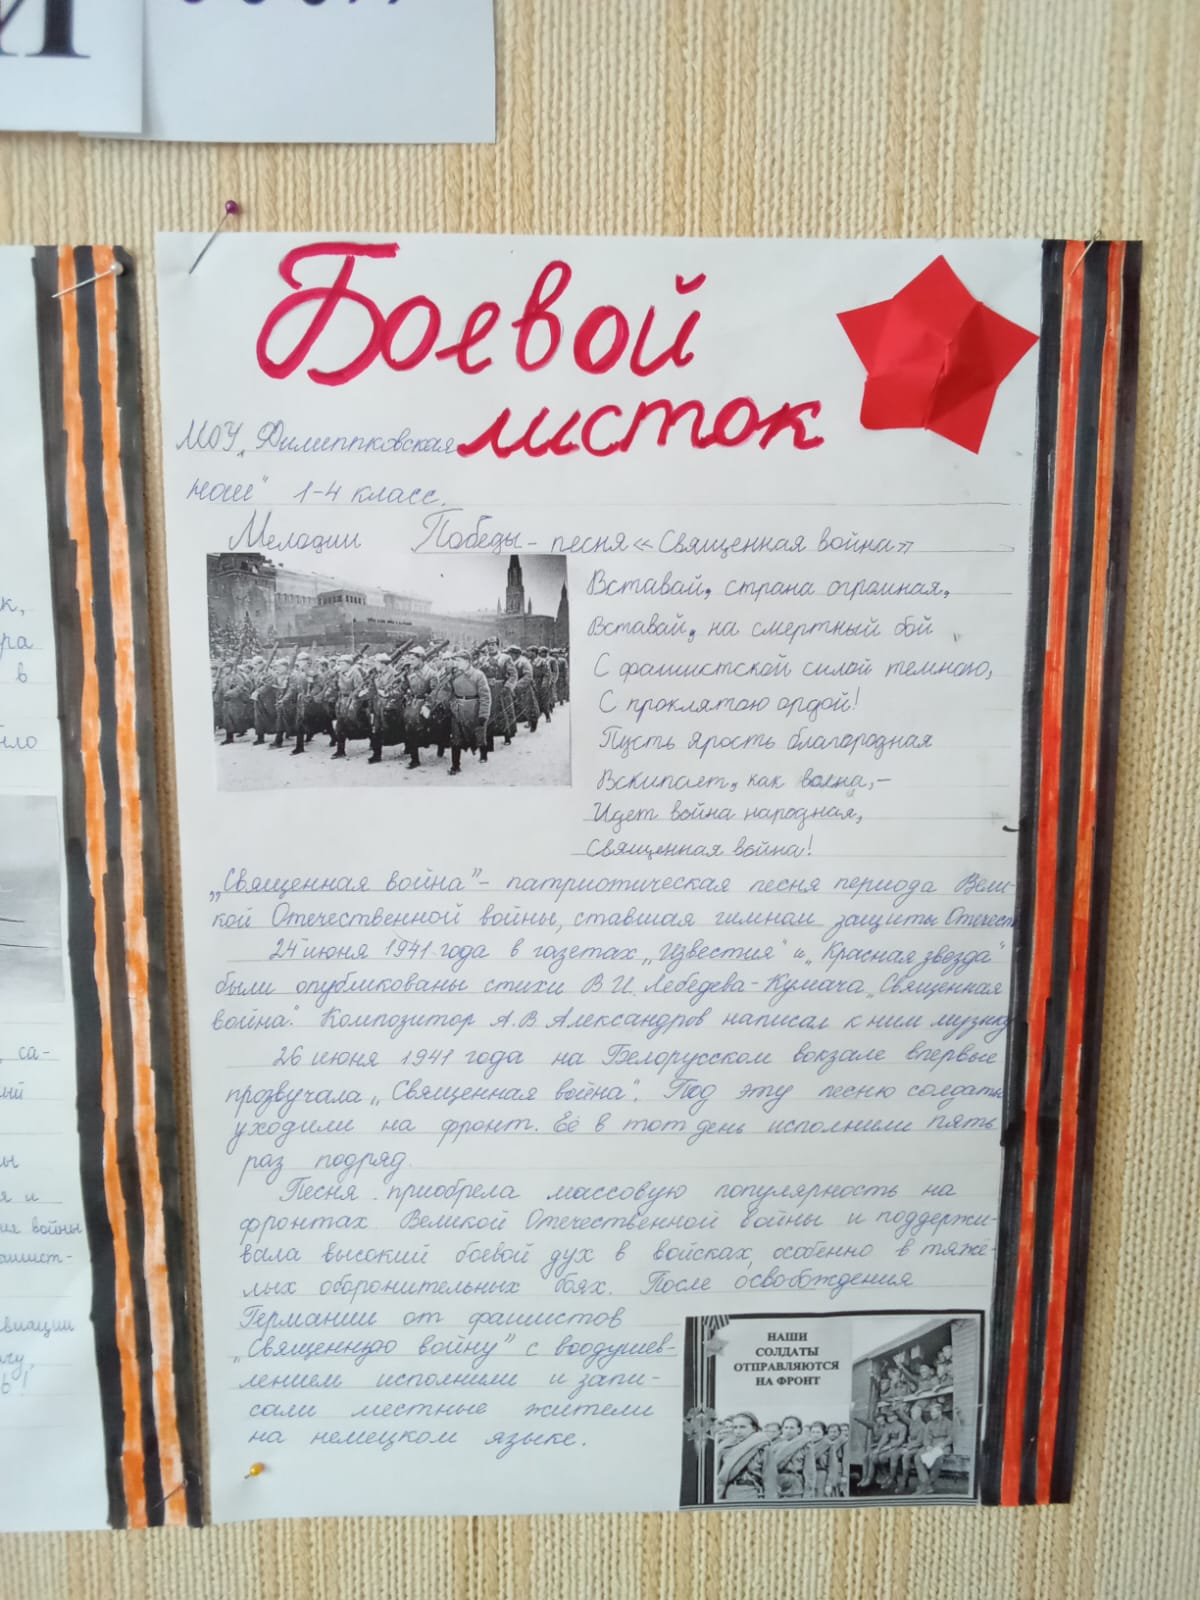 Боевой
листок
МОУ „Филиппковская
нош" 1-4 класс.
Мелодии Победы - песня «Священная война»
Вставай, страна огромная,
Вставай, на смертный бой
С фашистской силой темною,
С проклятою ордой!
Пусть Ярость благородная
Вскипает, как волна,-
Идет война народная,
Священная война!
„Священная война" - патриотическая песня периода Вели-
кой Отечественной войны, ставшая гимном защиты Отечест
24 июня 1941 года в газетах „Известия" и „Красная звезда"
были опубликованы стихи В.И. Лебедева-Кумача „Священная
война". Композитор А.В. Александров написал к ним музыку
26 июня 1941 года на Белорусском вокзале впервые
прозвучала „Священная война". Под эту песню солдаты
уходили на фронт. Её в тот день исполнили пять
раз подряд.
Песня приобрела массовую популярность на
фронтах Великой Отечественной войны и поддержи-
вала высокий боевой дух в войсках, особенно в тяжё-
лых оборонительных боях. После освобождения
Германии от фашистов
„Священную войну" с воодушев-
лением исполнили и запи-
сали местные жители
на немецком языке.
НАШИ
СОЛДАТЫ
ОТПРАВЛЯЮТСЯ
НА ФРОНТ
к,
ра
в
са-
ный
я и
войны
ашист-
авиации